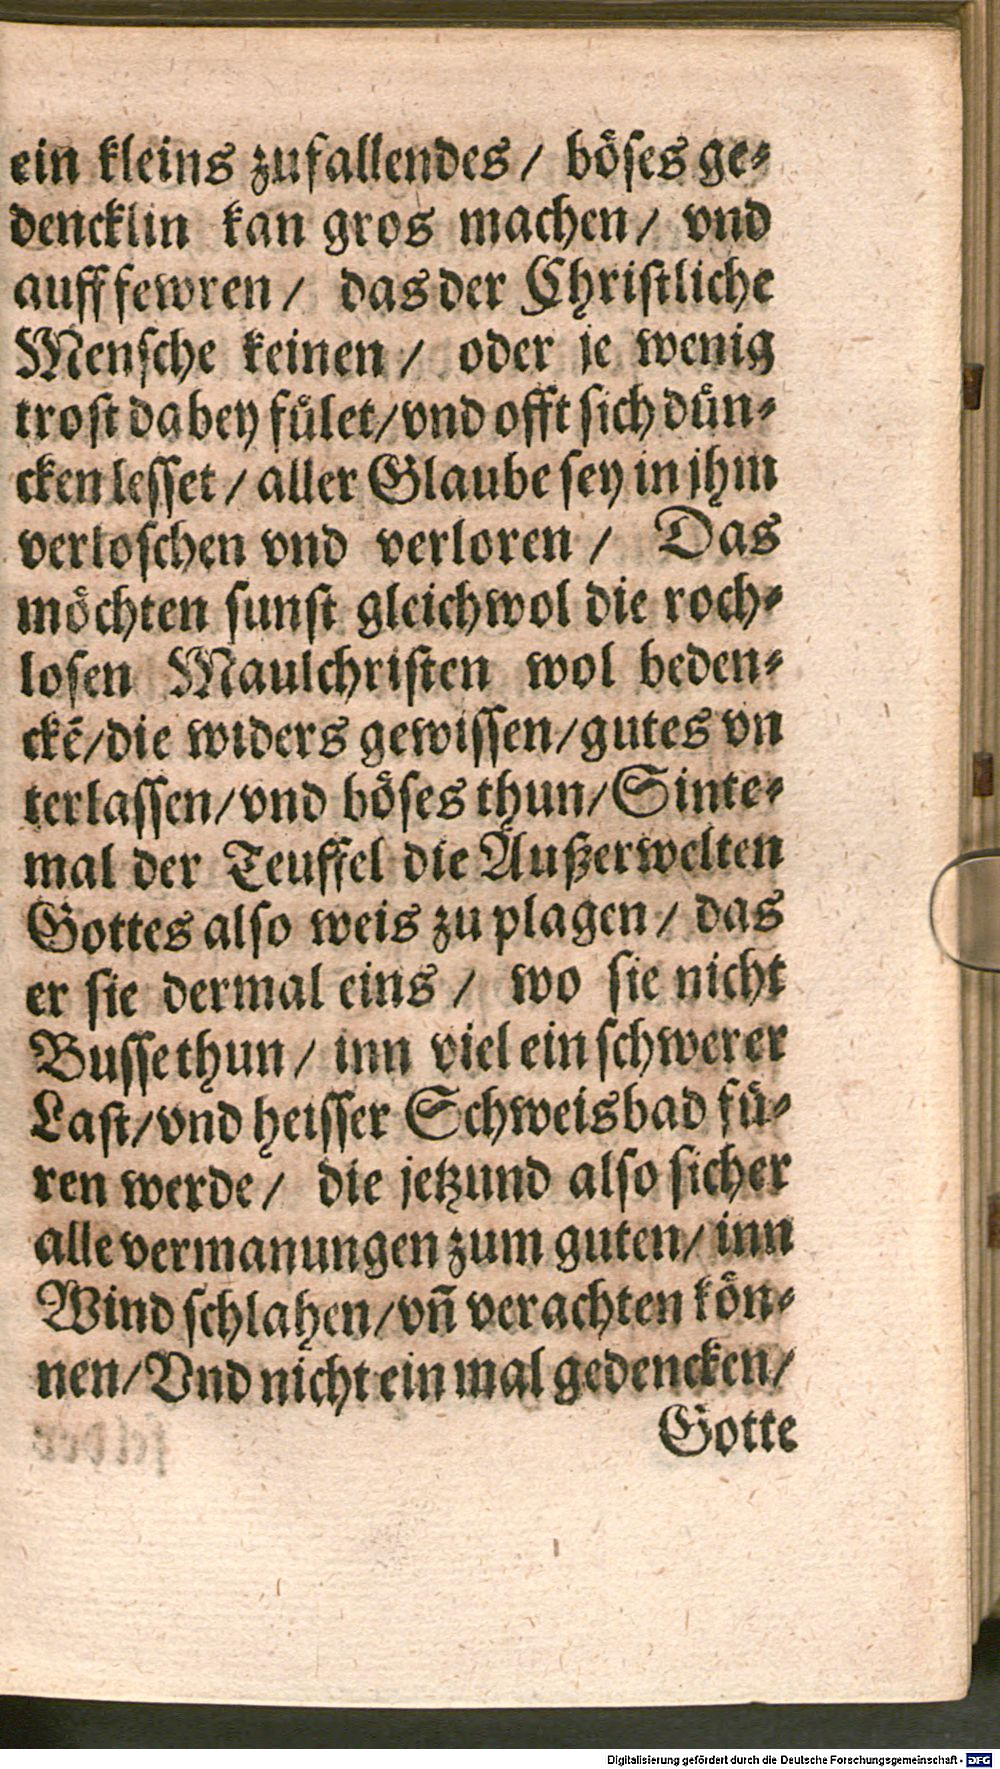 ein kleins zufallendes / böses ge-
dencklin kan gros machen / vnd
auff fewren / das der Christliche
Mensche keinen / oder je wenig
trost dabey fület/vnd offt sich dün-
cken lesset / aller Glaube sey in jhm
verloschen vnd verloren / Das
möchten sunst gleichwol die roch-
losen Maulchristen wol beden-
ckē/die widers gewissen/gutes vn
terlassen/vnd böses thun/Sinte-
mal der Teuffel die Außerwelten
Gottes also weis zu plagen / das
er sie dermal eins / wo sie nicht
Busse thun / inn viel ein schwerer
Last/vnd heisser Schweisbad fü-
ren werde / die jetzund also sicher
alle vermanungen zum guten/ inn
Wind schlahen/vn̄ verachten kön-
nen/Vnd nicht ein mal gedencken/
Gotte
Digitalisierung gefördert durch die Deutsche Forschungsgemeinschaft - DFG